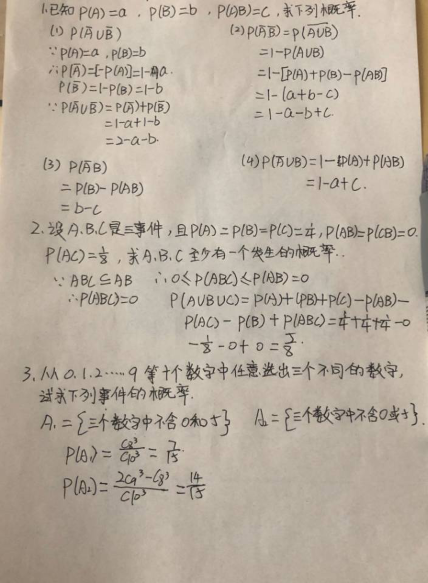 1.已知P(A)=a,P(B)=b,P(AB)=C,求下列概率.
(1) P(A̅∪B̅) (2)P(A̅B̅)=P(A̅∪̅B̅)
∵P(A)=a,P(B)=b =1-P(A∪B)
∴P(A̅)=1-P(A)=1-a. =1-[P(A)+P(B)-P(AB)]
P(B̅)=1-P(B)=1-b =1-(a+b-c)
∵P(A̅∪B̅)=P(A̅)+P(B̅) =1-a-b+c.
=1-a+1-b
=2-a-b.
(3) P(A̅B) (4)P(A̅∪B)=1-P(A)+P(AB)
=P(B)-P(AB) =1-a+c.
=b-c
2.设A.B.C是三事件,且P(A)=P(B)=P(C)=1/4,P(AB)=P(CB)=0.
P(AC)=1/8,求A.B.C至少有一个发生的概率..
∵ABC⊆AB ∴0≤P(ABC)≤P(AB)=0
∴P(ABC)=0 P(A∪B∪C)=P(A)+(PB)+P(C)-P(AB)-
P(AC)-P(B)+P(ABC)=1/4+1/4+1/4-0
-1/8-0+0=5/8.
3.从0.1.2……9等十个数字中任意选出三个不同的数字,
试求下列事件的概率.
A₁={三个数字中不含0和5} A₂={三个数字中不含0或5}.
P(A₁)=C8³/C10³=7/15.
P(A₂)=(2C9³-C8³)/C10³=14/15